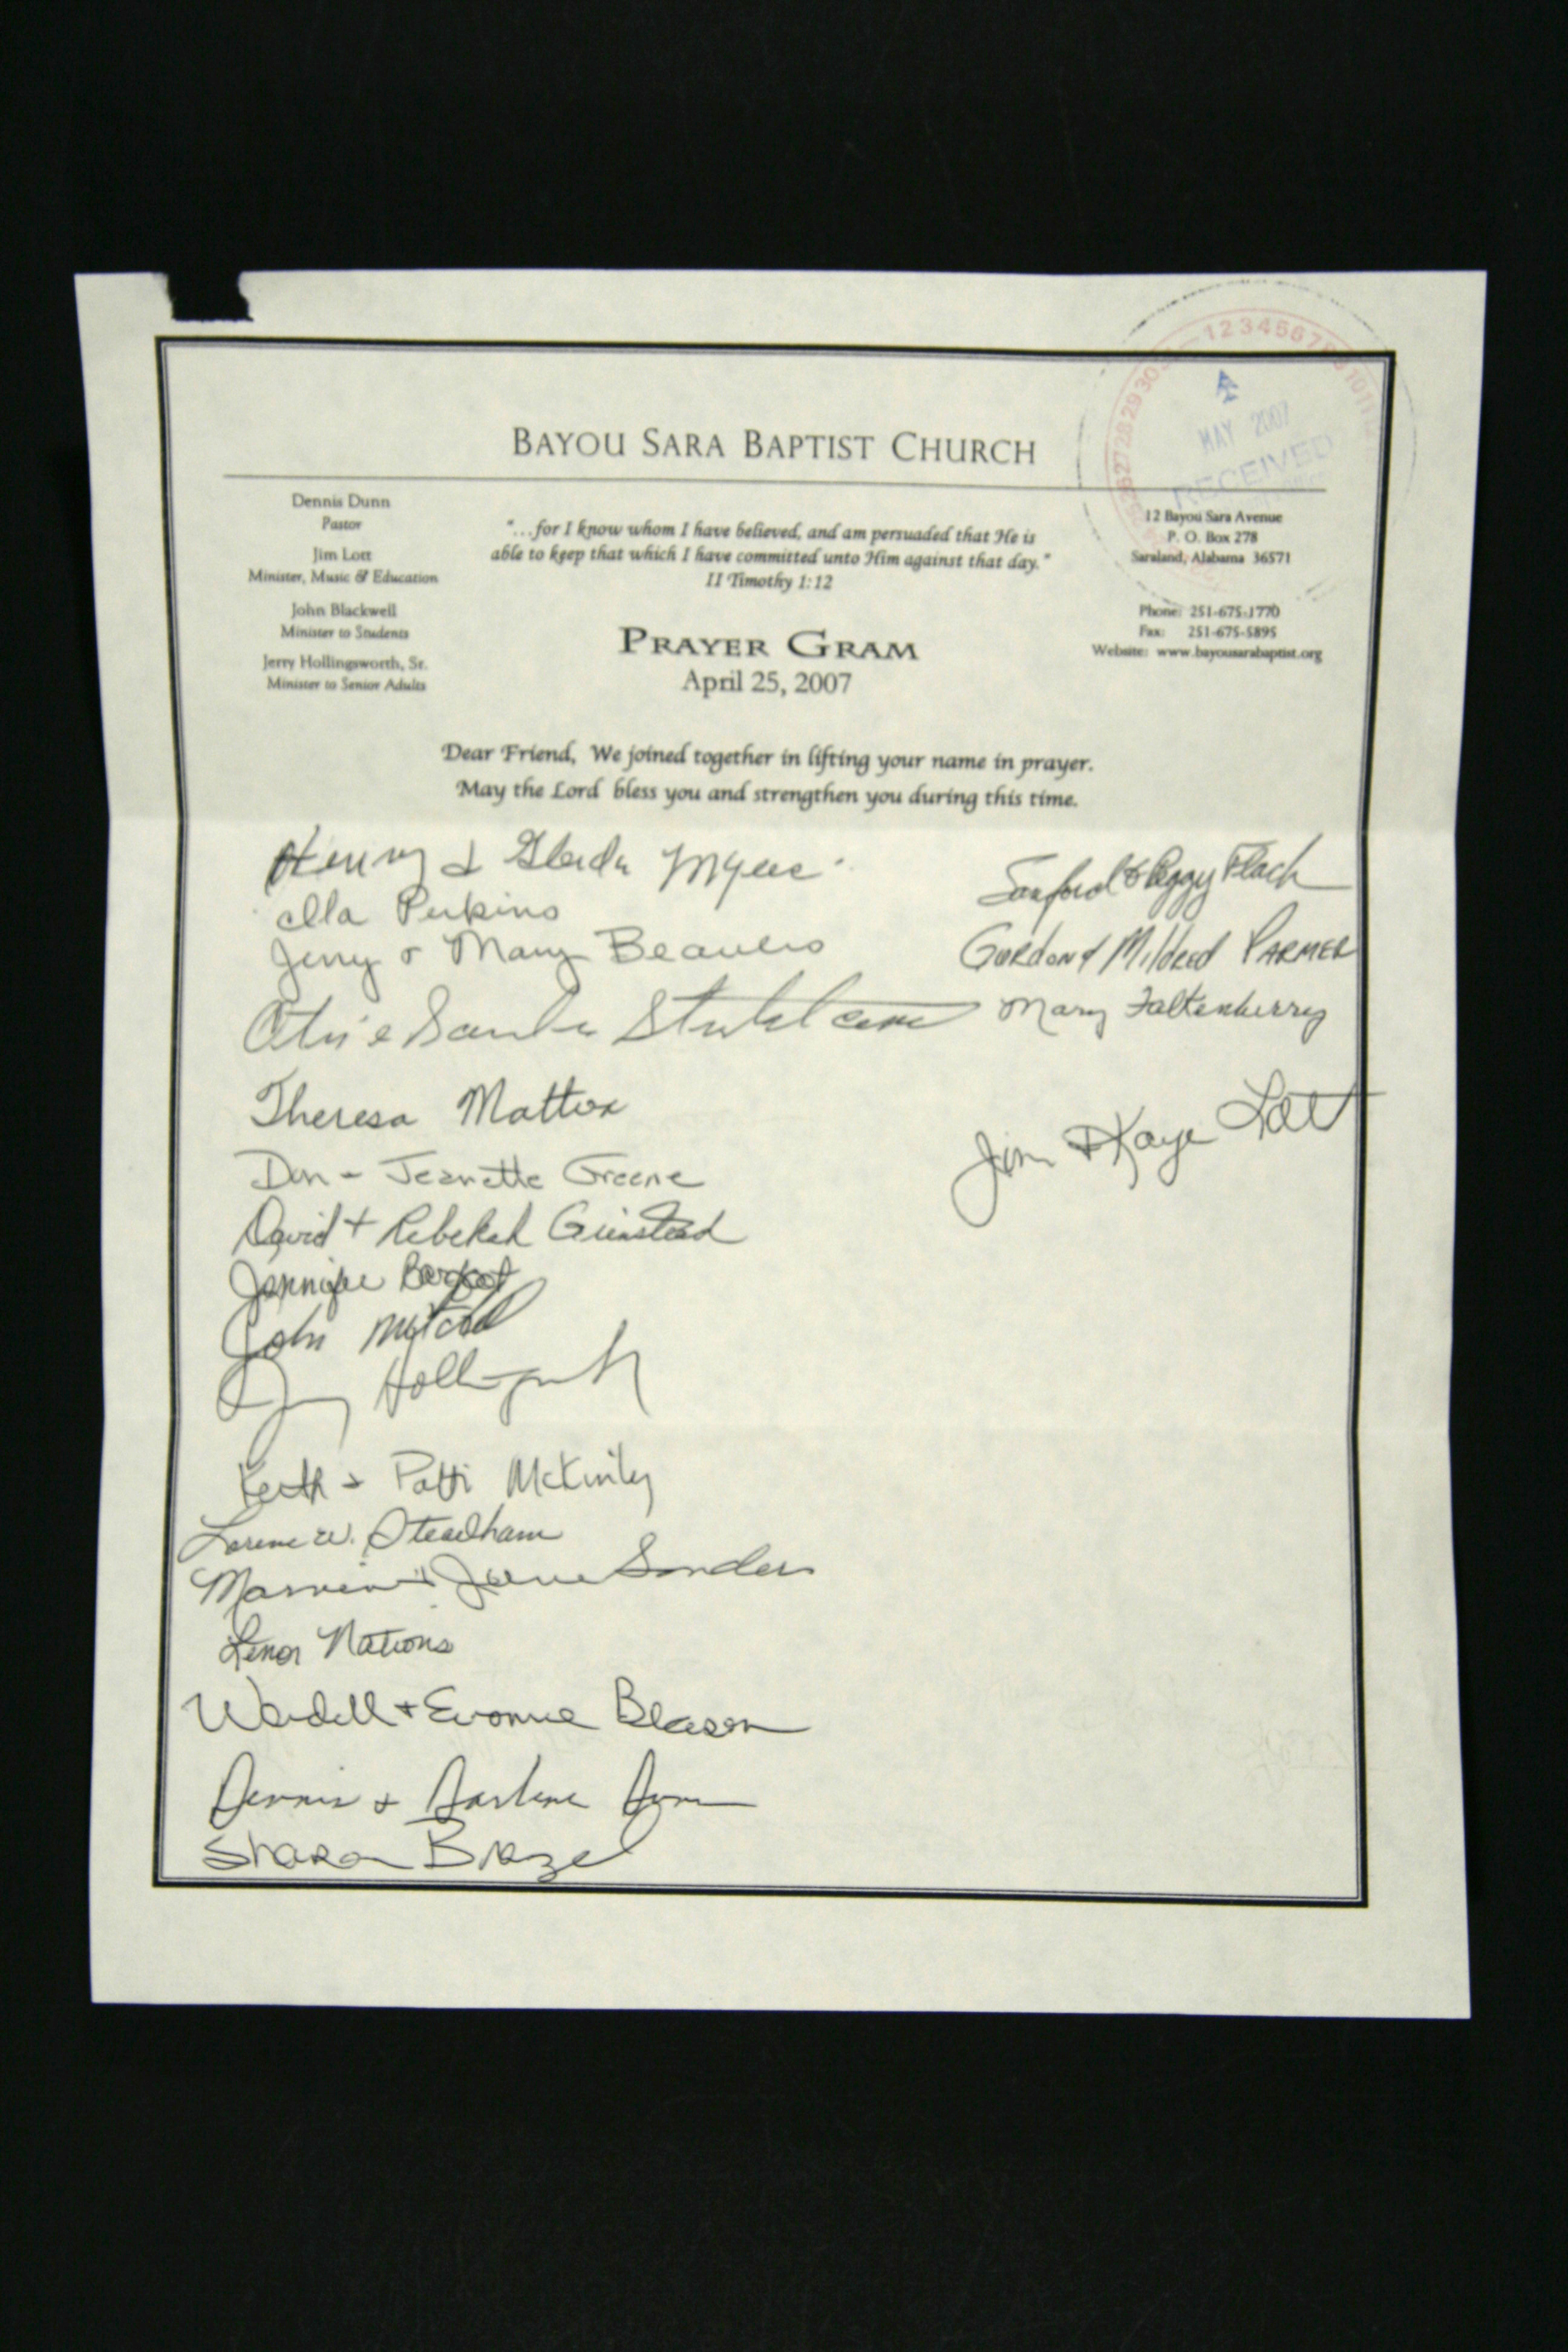 BAYOU SARA BAPTIST CHURCH
1 2 3 4 5 6 7
MAY 2007
RECEIVED
Dennis Dunn
Pastor
Jim Lott
Minister, Music & Education
John Blackwell
Minister to Students
Jerry Hollingsworth, Sr.
Minister to Senior Adults
"...for I know whom I have believed, and am persuaded that He is
able to keep that which I have committed unto Him against that day."
II Timothy 1:12
PRAYER GRAM
April 25, 2007
12 Bayou Sara Avenue
P. O. Box 278
Saraland, Alabama 36571
Phone: 251-675-1770
Fax: 251-675-5895
Website: www.bayousarabaptist.org
Dear Friend, We joined together in lifting your name in prayer.
May the Lord bless you and strengthen you during this time.
Henry & Glenda Myers
Ella Perkins
Jerry & Mary Beavers
Theresa Mattox
Don & Jeanette Greene
David + Rebekah Grimstead
Jennifer
John
Jerry Hollingsworth
Keith & Patti McKinley
Lorene W. Steadham
Sanders
Lenor Nations
Wendell + Evonne
Dennis & Darlene Dunn
Sharon Brazel
Sanford & Peggy Flach
Gordon & Mildred PARMER
Mary Faltenberry
Jim & Kaye Lott